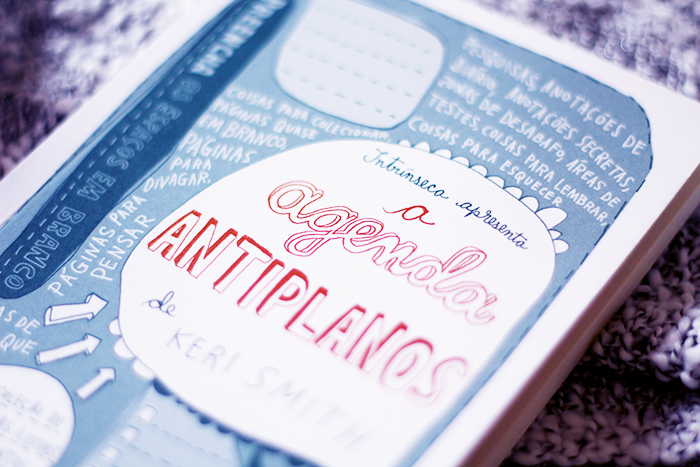 PREENCHA OS ESPAÇOS EM BRANCO
PESQUISAS, ANOTAÇÕES DE
ANOTAÇÕES SECRETAS,
ZONAS DE DESABAFO, ÁREAS DE
TESTES COISAS PARA LEMBRAR,
COISAS PARA ESQUECER
COISAS PARA COLECIONAR,
PÁGINAS QUASE
EM BRANCO,
PÁGINAS
PARA
DIVAGAR.
PÁGINAS PARA
PENSAR
AS DE
QUE
Intrínseca apresenta
a
agenda
ANTIPLANOS
de
KERI SMITH